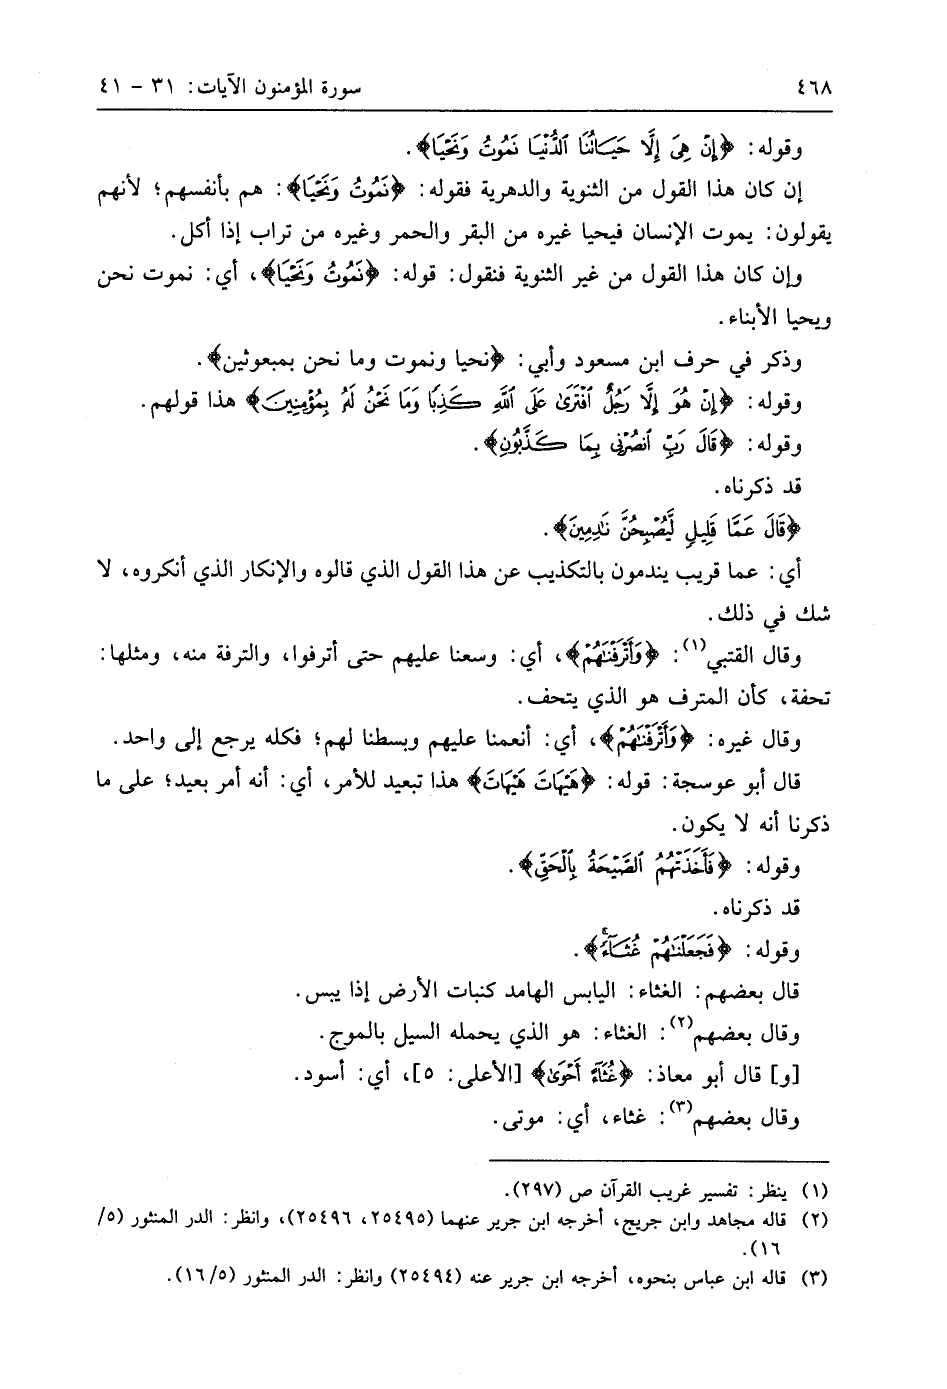 ٤٦٨ سورة المؤمنون الآيات: ٣١ - ٤١
وقوله: ﴿إِنْ هِىَ إِلَّا حَيَاتُنَا ٱلدُّنْيَا نَمُوتُ وَنَحْيَا﴾.
إن كان هذا القول من الثنوية والدهرية فقوله: ﴿نَمُوتُ وَنَحْيَا﴾: هم بأنفسهم؛ لأنهم
يقولون: يموت الإنسان فيحيا غيره من البقر والحمر وغيره من تراب إذا أكل.
وإن كان هذا القول من غير الثنوية فنقول: قوله: ﴿نَمُوتُ وَنَحْيَا﴾، أي: نموت نحن
ويحيا الأبناء.
وذكر في حرف ابن مسعود وأبي: ﴿نحيا ونموت وما نحن بمبعوثين﴾.
وقوله: ﴿إِنْ هُوَ إِلَّا رَجُلٌ ٱفْتَرَىٰ عَلَى ٱللَّهِ كَذِبًا وَمَا نَحْنُ لَهُ بِمُؤْمِنِينَ﴾ هذا قولهم.
وقوله: ﴿قَالَ رَبِّ ٱنصُرْنِى بِمَا كَذَّبُونِ﴾.
قد ذكرناه.
﴿قَالَ عَمَّا قَلِيلٍ لَّيُصْبِحُنَّ نَٰدِمِينَ﴾.
أي: عما قريب يندمون بالتكذيب عن هذا القول الذي قالوه والإنكار الذي أنكروه، لا
شك في ذلك.
وقال القتبي(١): ﴿وَأَتْرَفْنَٰهُمْ﴾، أي: وسعنا عليهم حتى أترفوا، والترفة منه، ومثلها:
تحفة، كأن المترف هو الذي يتحف.
وقال غيره: ﴿وَأَتْرَفْنَٰهُمْ﴾، أي: أنعمنا عليهم وبسطنا لهم؛ فكله يرجع إلى واحد.
قال أبو عوسجة: قوله: ﴿هَيْهَاتَ هَيْهَاتَ﴾ هذا تبعيد للأمر، أي: أنه أمر بعيد؛ على ما
ذكرنا أنه لا يكون.
وقوله: ﴿فَأَخَذَتْهُمُ ٱلصَّيْحَةُ بِٱلْحَقِّ﴾.
قد ذكرناه.
وقوله: ﴿فَجَعَلْنَٰهُمْ غُثَآءً﴾.
قال بعضهم: الغثاء: اليابس الهامد كنبات الأرض إذا يبس.
وقال بعضهم(٢): الغثاء: هو الذي يحمله السيل بالموج.
[و] قال أبو معاذ: ﴿غُثَآءً أَحْوَىٰ﴾ [الأعلى: ٥]، أي: أسود.
وقال بعضهم(٣): غثاء، أي: موتى.
(١) ينظر: تفسير غريب القرآن ص (٢٩٧).
(٢) قاله مجاهد وابن جريج، أخرجه ابن جرير عنهما (٢٥٤٩٥، ٢٥٤٩٦)، وانظر: الدر المنثور (٥/
١٦).
(٣) قاله ابن عباس بنحوه، أخرجه ابن جرير عنه (٢٥٤٩٤) وانظر: الدر المنثور (١٦/٥).